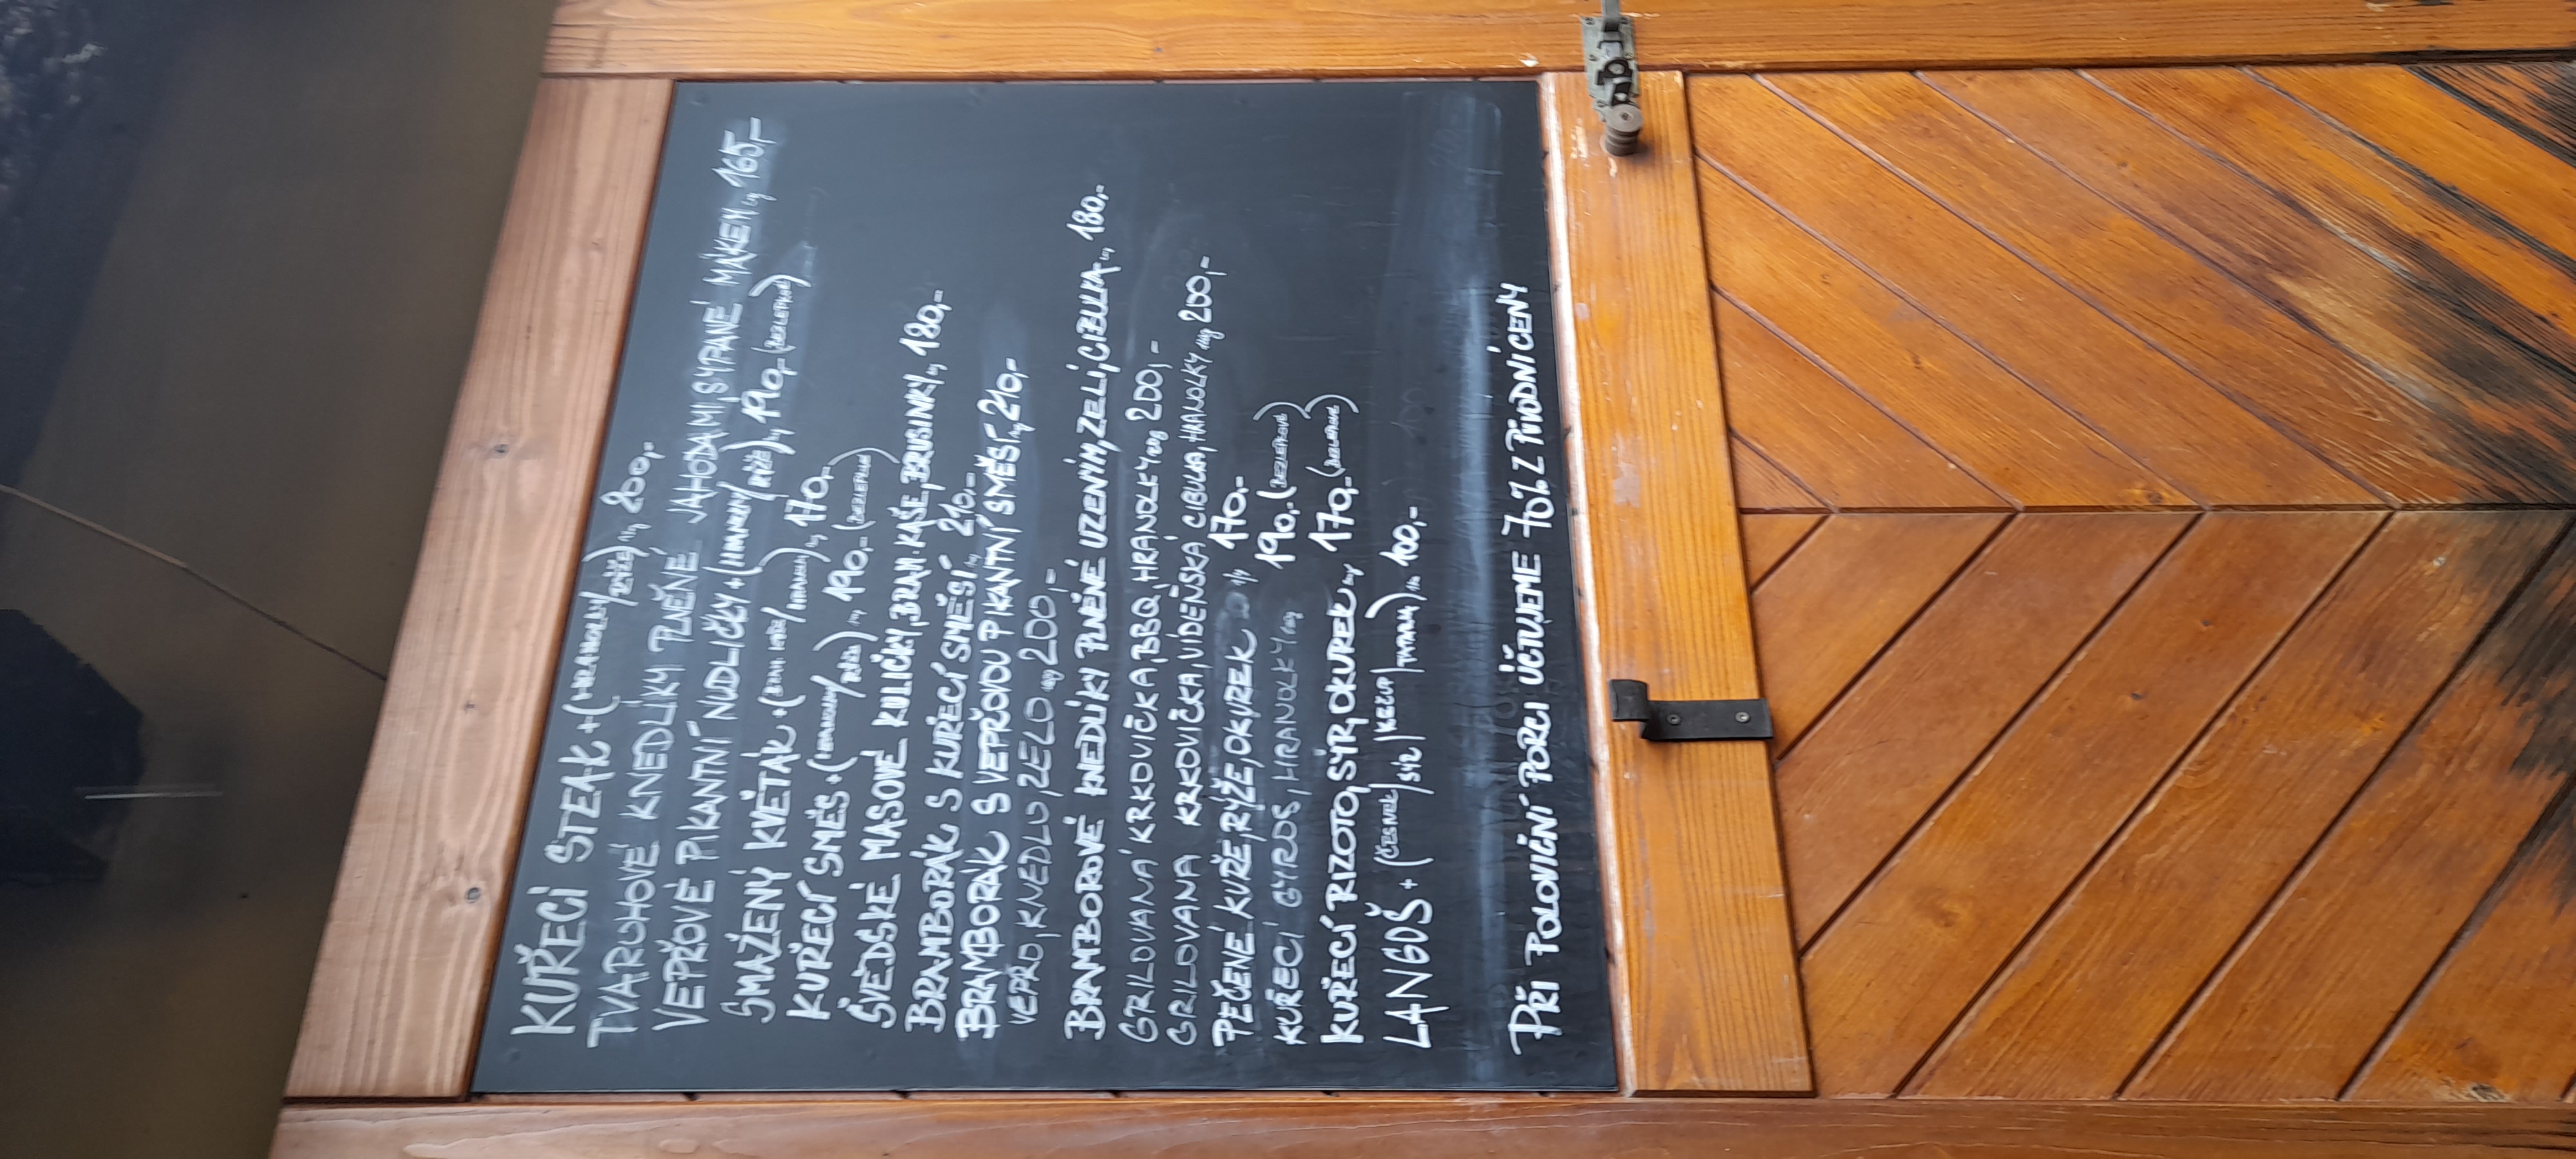 KUŘECÍ STEAK + (HRANOLKY/RÝŽE) 1,7 200,-
TVAROHOVÉ KNEDLÍKY PLNĚNÉ JAHODAMI, SYPANÉ MÁKEM 1,7 165,-
VEPŘOVÉ PIKANTNÍ NUDLIČKY + (/RÝŽE) 190,- (BEZLEPKOVÉ)
SMAŽENÝ KVĚTÁK + (/) 170,-
KUŘECÍ SMĚS + (/RÝŽE) 190,- ()
ŠVÉDSKÉ MASOVÉ KULIČKY, BRAM. KAŠE, BRUSINKY 180,-
BRAMBORÁK S KUŘECÍ SMĚSÍ 210,-
BRAMBORÁK S VEPŘOVOU PIKANTNÍ SMĚSÍ 210,-
VEPŘO, KNEDLO, ZELO 200,-
BRAMBOROVÉ KNEDLÍKY PLNĚNÉ UZENÝM, ZELÍ, CIBULKA 180,-
GRILOVANÁ KRKOVIČKA, BBQ, HRANOLKY 200,-
GRILOVANÁ KRKOVIČKA, VÍDEŇSKÁ CIBULKA, HRANOLKY 200,-
PEČENÉ KUŘE, RÝŽE, OKUREK 170,-
KUŘECÍ GYROS, HRANOLKY 190,- (BEZLEPKOVÉ)
KUŘECÍ RIZOTO, SÝR, OKUREK 170,- (BEZLEPKOVÉ)
LANGOŠ + (ČESNEK/SÝR/KEČUP/TATARKA) 100,-
PŘI POLOVIČNÍ PORCI ÚČTUJEME 70% Z PŮVODNÍ CENY